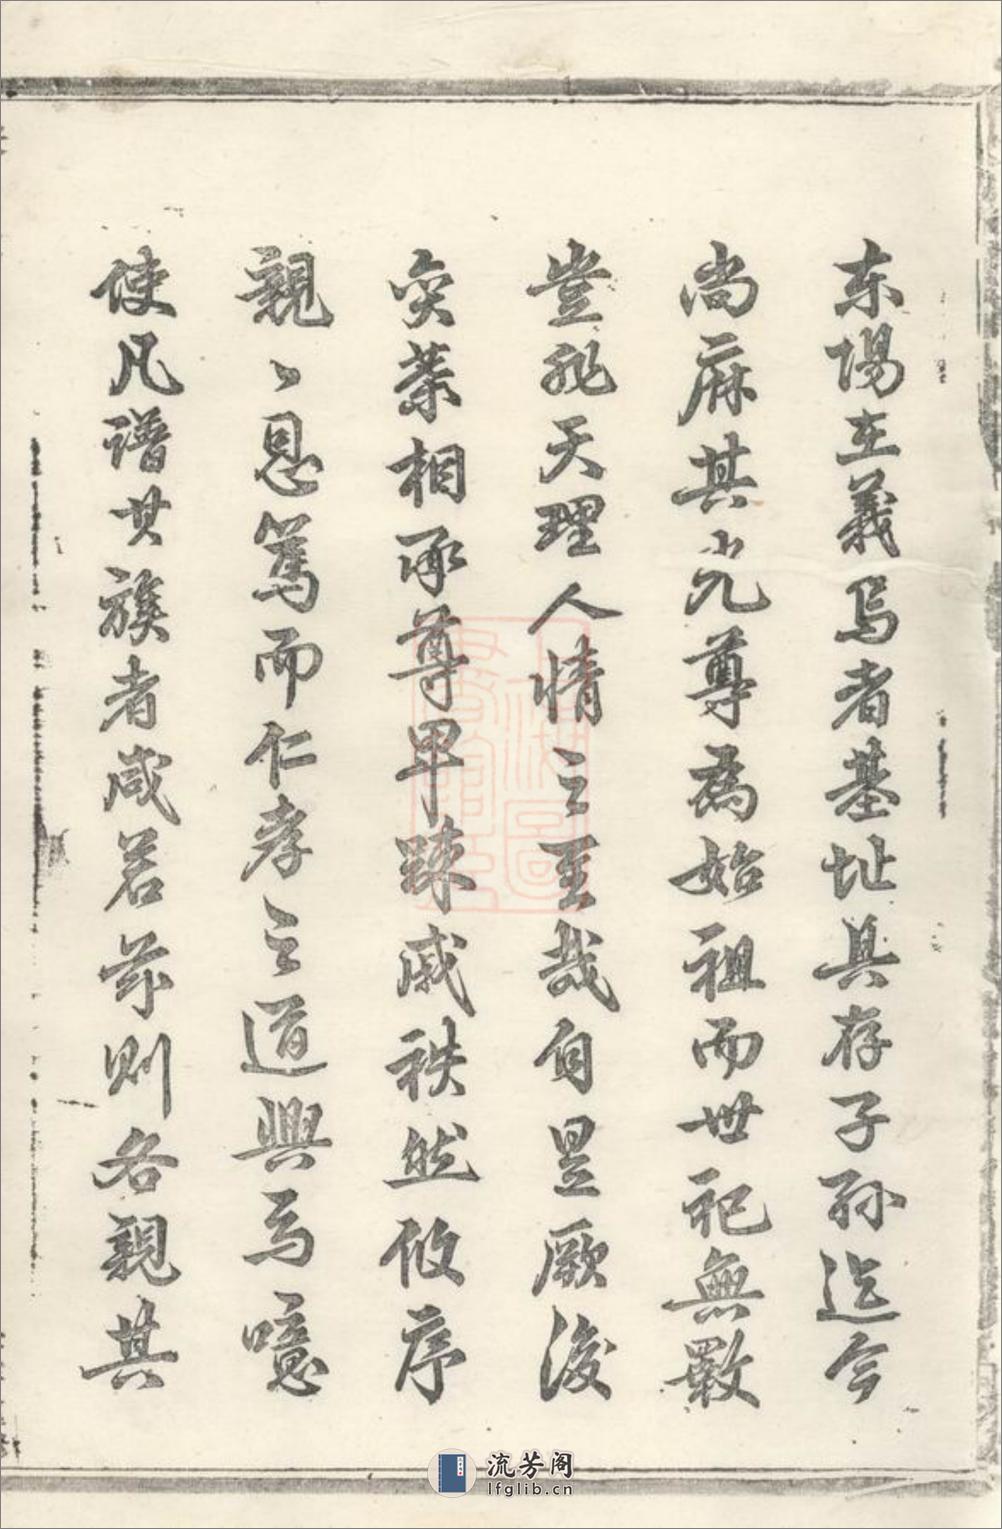 东陽在義烏者基址具存子孫迄今
尚庥其光尊爲始祖而世祀無斁
豈非天理人情之至哉自是厥後
奕葉相承尊卑踈戚秩然攸序
親〻恩篤而仁孝之道興焉噫
使凡譜其族者咸若茲則各親其
流芳阁
lfglib.cn